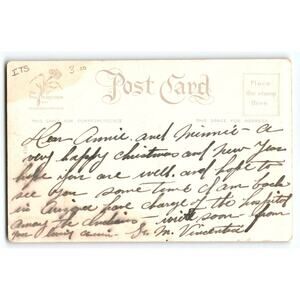 ITS 3.00
Post Card
Place the stamp here
THIS SPACE FOR CORRESPONDENCE THIS SPACE FOR ADDRESS
Dear Annie and Minnie - a
very happy Christmas and New Year
hope you are well and hope to
see you some time I am back
in have charge of the hospital
write soon from
your loving Sr. M. Vincentia